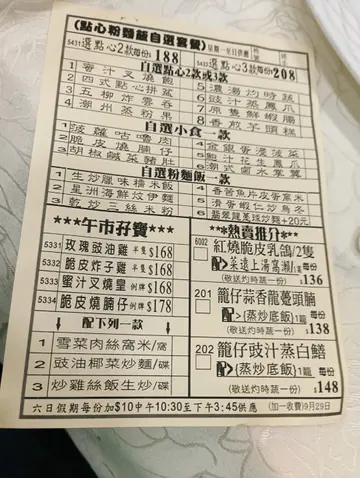 (點心粉麵飯自選套餐)
星期一至日供應
5431 選點心2款每份$188
5432 選點心3款每份$208
自選點心2款或3款
1 蜜汁叉燒飽
2 四式點心拼盆
3 五柳炸雲吞
4 潮州蒸粉果
5 濃湯灼時蔬
6 豉汁蒸鳳爪
7 原隻鮮蝦腸
8 香煎芋頭糕
自選小食一款
1 菠蘿咕嚕肉
2 脆皮燒腩仔
3 胡椒鹹菜豬肚
4 金銀蛋浸菠菜
5 鮑汁花生鳳爪
6 潮式鹵水掌翼
自選粉麵飯一款
1 生炒臘味糯米飯
2 星洲海鮮炆伊麵
3 乾炒三絲米粉
4 香茜魚片皮蛋窩米
5 滑蛋蝦仁炒烏冬
***午市孖寶***
5331 玫瑰豉油雞 半隻 $168
5332 脆皮炸子雞 半隻 $168
5333 蜜汁叉燒皇 例牌 $168
5334 脆皮燒腩仔 例牌 $178
配下列一款
1 雪菜肉絲窩米/窩
2 豉油椰菜炒麵/碟
3 炒雞絲飯生炒/碟
**熱賣推介**
6002 紅燒脆皮乳鴿/2隻
每份
(敬送灼時蔬一份) $136
201 籠仔蒜香龍躉頭腩
配>(蒸炒底飯)1籠 每份
(敬送灼時蔬一份) $138
202 籠仔豉汁蒸白鱔
配>(蒸炒底飯)1籠 每份
(敬送灼時蔬一份) $148
六日假期每份加$10中午10:30至下午3:45供應
(加一收費)9月29日